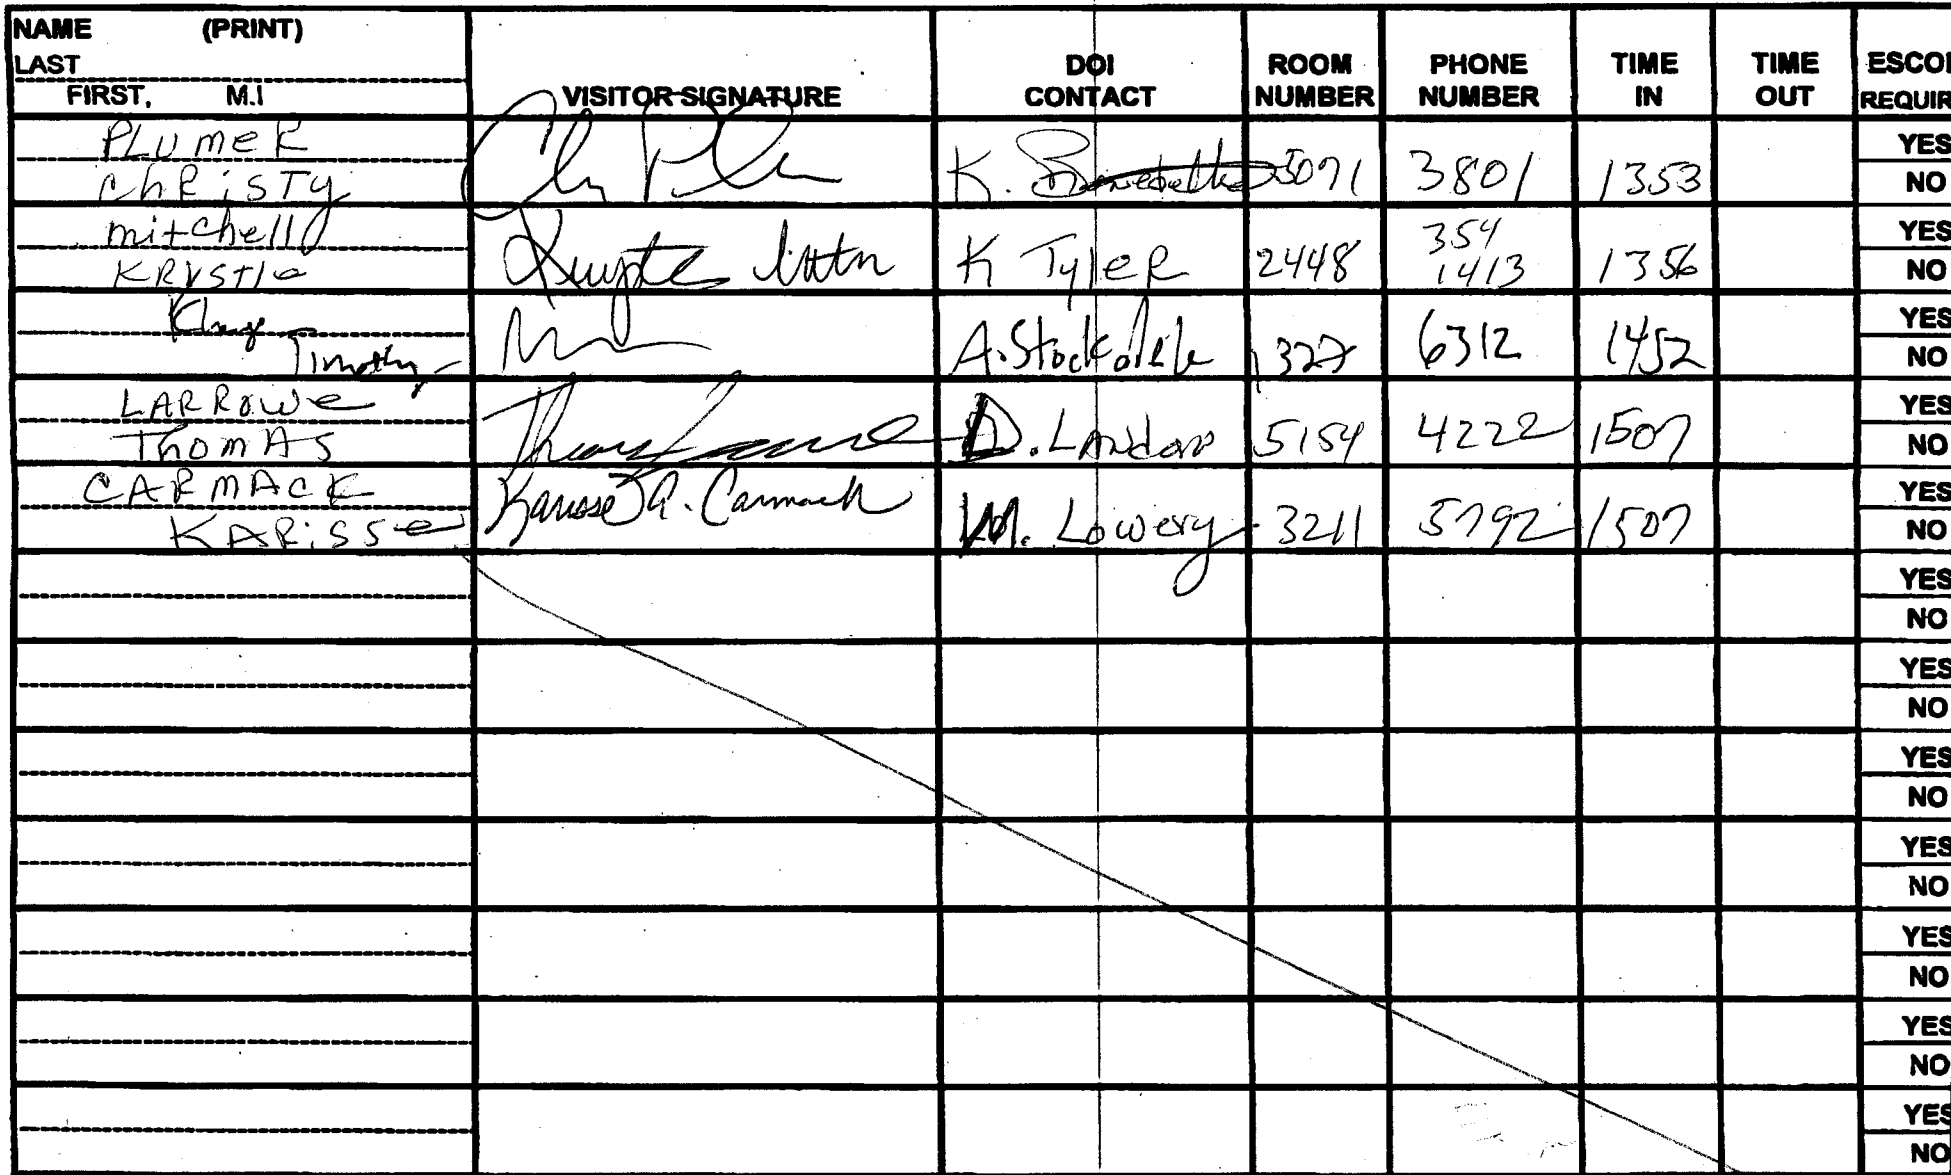 NAME (PRINT)
LAST
FIRST, M.I
VISITOR SIGNATURE
DOI CONTACT
ROOM NUMBER
PHONE NUMBER
TIME IN
TIME OUT
ESCOR
REQUIR
PLUMER
CHRISTY
K.
5071 3801 1353
YES
NO
mitchell
KRYSTle
K TyleR 2448 354 1413 1356
YES
NO
Timothy
A. Stockdale 1327 6312 1452
YES
NO
LARROWe
ThomAS
D. LAndon 5154 4222 1507
YES
NO
CARMACK
KARiSSe
Karisse A. Carmack
M. Lowery 3211 5792 1507
YES
NO
YES
NO
YES
NO
YES
NO
YES
NO
YES
NO
YES
NO
YES
NO